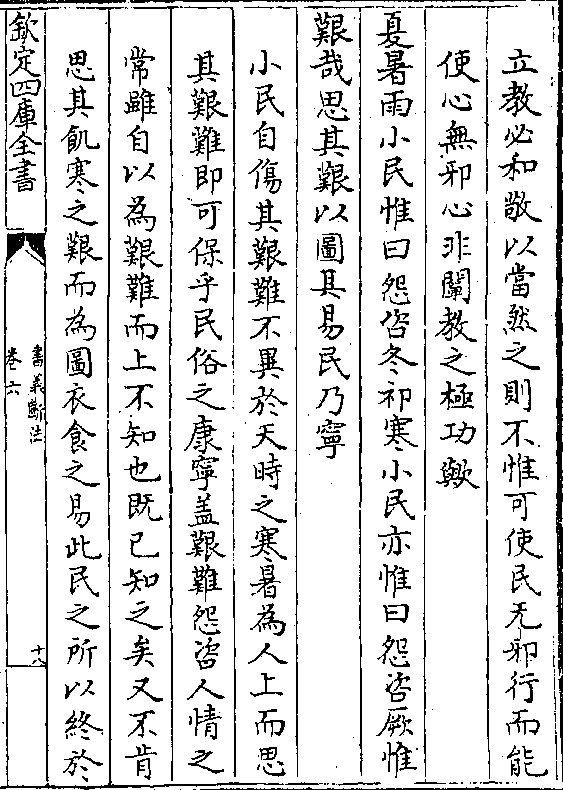 立教必和敬以當然之則不惟可使民无邪行而能
使心無邪心非闡教之極功歟
夏暑雨小民惟曰怨咨冬祁寒小民亦惟曰怨咨厥惟
艱哉思其艱以圖其易民乃寧
小民自傷其艱難不異於天時之寒暑為人上而思
其艱難即可保乎民俗之康寧盖艱難怨咨人情之
常雖自以為艱難而上不知也既已知之矣又不肯
思其飢寒之艱而為圖衣食之易此民之所以終於
欽定四庫全書
書義斷法
卷六
十八